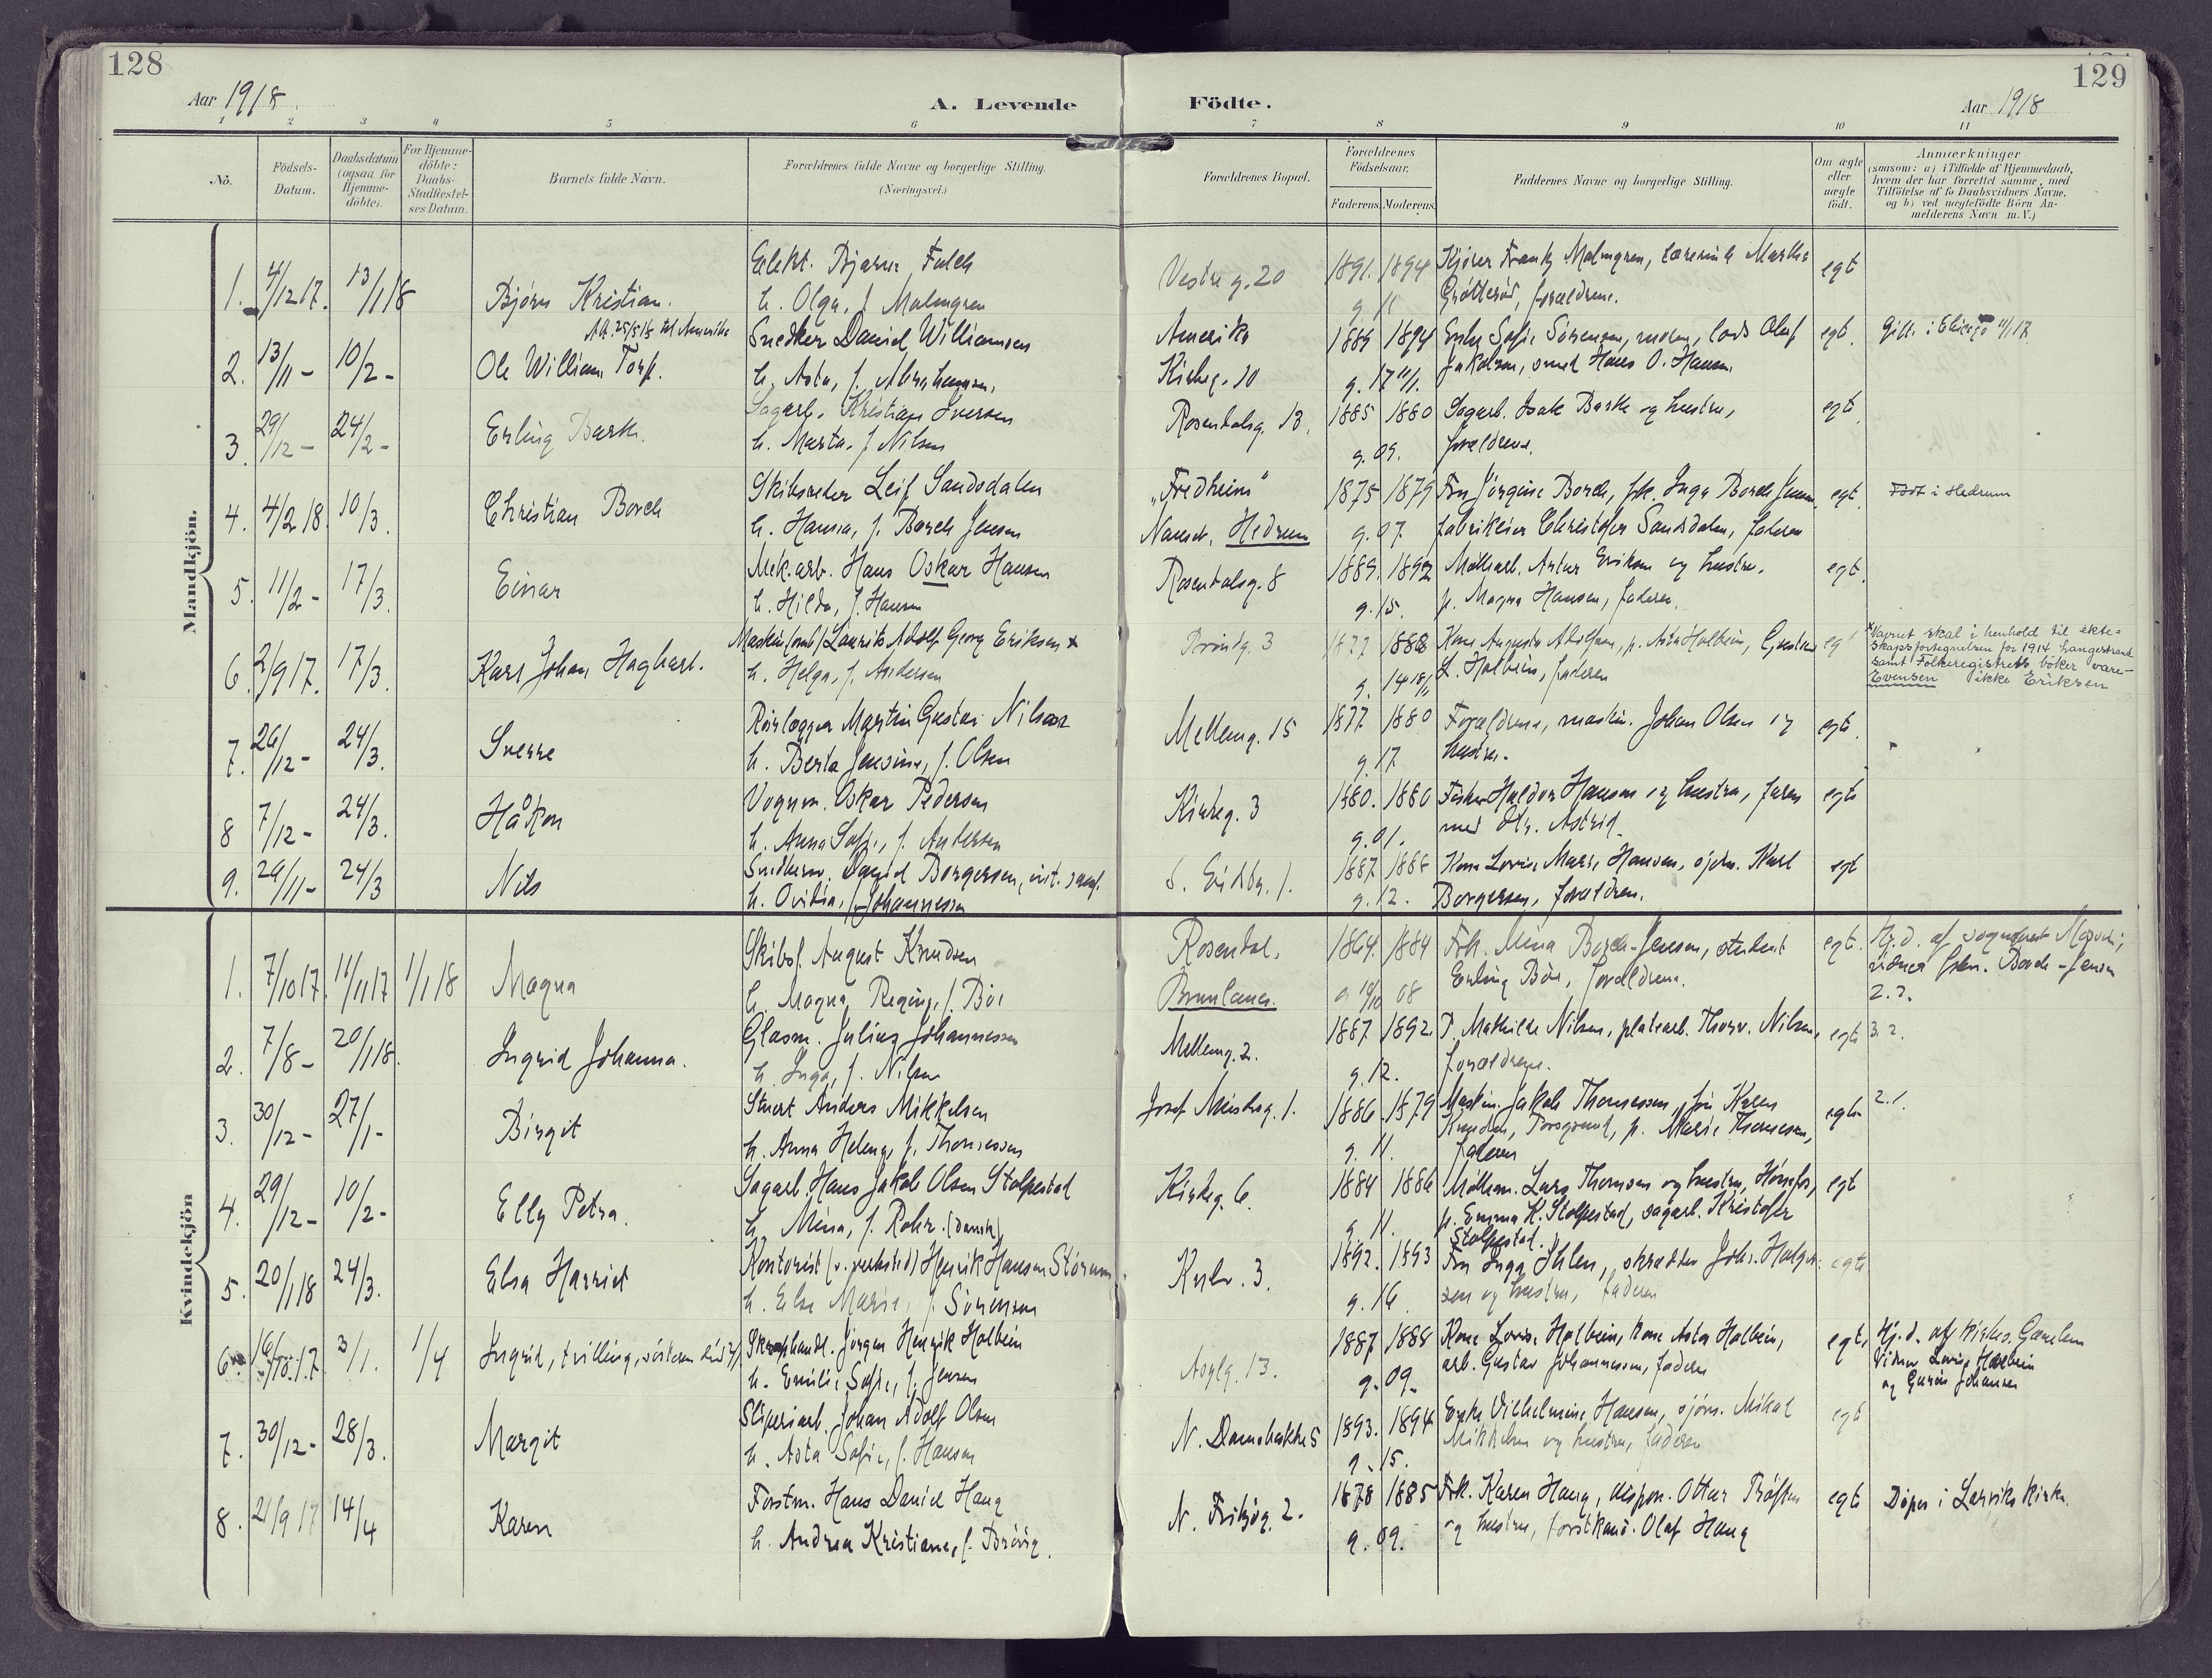 128
129
Aar 1918.
A. Levende Födte.
Aar 1918
1 2 3 4 5 6 7 8 9 10 11
No. Födsels-Datum. Daabsdatum (ogsaa for Hjemme-döbte). For Hjemme-döbte: Daabs-Stadfæstel-ses Datum. Barnets fulde Navn. Forældrenes fulde Navne og borgerlige Stilling. (Næringsvei.) Forældrenes Bopæl. Forældrenes Födselsaar. Faderens. Moderens. Faddernes Navne og borgerlige Stilling. Om ægte eller uægte födt. Anmærkninger
(saasom: a) i Tilfælde af Hjemmedaab, hvem der har forrettet samme, med Tilföielse af to Daabsvidners Navne. og b) ved uægtefödte Börn An-melderens Navn m. V.)
Mandkjön.
Elekt. Bjarne Falch
1. 4/12 17. 13/1 18 Bjørn Kristian. Vestre g. 20 1891. 1894 Kjører Frantz Malmgren, lærerinde Martha egt
h. Olga, f. Malmgren Grøtterød, forældrene.
Att. 25/5 15 til Amerika
Snedker Daniel Williamsen Amerika 1889 1894 Enke Sofie Sørensen, moren, lods Olaf egt. Gift i Chicago 11/1 17
2. 13/11 - 10/2 - Ole William Torp.
h. Asta, f. Abrahamsen. Kirkeg. 10 g. 17 11/1. Jakobsen, smed Hans O. Hansen.
Sagarb. Kristian Iversen Rosendalsg. 13. 1885 1880 Sagarb. Isak Barth og hustru, egt
3. 29/12 - 24/2 - Erling Barth.
h. Marta, f. Nilsen g. 09. forældrene.
Skibsreder Leif Sandsdalen "Fredheim" 1875 1879 Fru Jørgine Borch, frk. Inga Borch Jensen, egt. Født i Hedrum
4. 4/2 18. 10/3. Christian Borch
h. Hanna, f. Borch Jensen Nanset, Hedrum g. 07. fabrikeier Christofer Sandsdalen, faderen
Mek. arb. Hans Oskar Hansen Rosendalsg. 8 1889. 1892 Møllearb. Artur Eriksen og hustru, egt.
5. 11/2 - 17/3. Einar
h. Hilda, f. Hansen g. 15. p. Magna Hansen, faderen.
Maskin(omb) Laurits Adolf Georg Eriksen x g. 3 1877 1888 Kone Augusta Adolfsen, p. Asta Holbein, Gustav egt
6. 2/9 17. 17/3. Karl Johan Hagbart.
h. Helga, f. Andersen g. 14 18/1 L. Holbein, faderen
x Navnet skal i henhold til ekte-
skapsfortegnelsen for 1914 Langestrand
samt Folkeregistrets bøker være-
Evensen ikke Eriksen
Rørlægger Martin Gustav Nilsen Mellemg. 15 1877. 1880 Forældrene, maskin. Johan Olsen og egt.
7. 26/12 - 24/3. Sverre
h. Berta Jensine, f. Olsen g. 17 hustru.
Vognm. Oskar Pedersen Kirkeg. 3 1880. 1880 Fisker Haldor Hansen og hustru, faren egt
8 7/12 - 24/3. Håkon
h. Anna Sofie, f. Andersen g. 01. med dtr. Astrid.
Snedkerm. David Borgersen, 1887. 1888 Kone Lovise Marie Hansen, sjøm. Karl egt
9. 29/11 - 24/3 Nils
h. Ovidia, f. Johannessen g. 12. Borgersen, forældrene.
Kvindekjön
Skibsf. August Knudsen Rosendal, 1864. 1884 Frk. Mina Borch-Jensen, student egt. Hj.d. af sogneprest
1. 7/10 17. 11/11 17 1/1 18 Magna
h. Magna Regine, f. Bøe Brunlanes. g. 10/10 08 Erling Bøe, forældrene. vidner frkn. Borch-Jensen
2. 2.
Glasm. Julius Johannessen Mellemg. 2. 1887. 1892 P. Mathilde Nilsen, platearb. Thorv. Nilsen, egt 3. 2.
2. 7/8 - 20/1 18. Ingrid Johanna.
h. Inga, f. Nilsen g. 12. forældrene.
Stuert Anders Mikkelsen g. 1. 1886. 1879 Maskin. Jakob Thomassen, fru Karen egt 2. 1.
3. 30/12 - 27/1 - Birgit
h. Anna Helene, f. Thomassen g. 11. Knudsen, Porsgrund, p. Marie Thomassen,
faderen
Sagarb. Hans Jakob Olsen Stolpestad Kirkeg. 6. 1884 1886 Møllem. Lars Thomsen og hustru, Hønefos, egt
4. 29/12 - 10/2 - Elly Petra.
h. Mina, f. Rohr. (Dansk) g. 11. p. Emma K. Stolpestad, sagarb. Kristofer
Stolpestad.
Kontorist (v. verksted) Henrik Hansen Størum. 3. 1892. 1893 Fru Inga Ihlen, skrædder Johs. Holger- egt
5. 20/1 18 24/3. Elsa Harriet
h. Else Marie, f. Sørensen g. 16. sen og hustru, faderen
Skraphandl. Jørgen Henrik Holbein 13. 1887 1888 Kone Lovise Holbein, kone Asta Holbein, egt. Hj.d. af Gamlem
6. 16/10. 17. 3/1. 1/4 Ingrid, tvilling, søsteren
h. Emilie Sofie, f. Jensen g. 09. arb. Gustav Johannessen, faderen Vidner Lovise Holbein
og Johansen
Sliperiarb. Johan Adolf Olsen N. Damsbakken 5 1893. 1894 Enke Vilhelmine Hansen, sjøm. Mikal egt
7. 30/12 - 28/3. Margit
h. Asta Sofie, f. Hansen g. 15. Mikkelsen og hustru, faderen
Forstm. Hans Daniel Haug N. Fritzøg. 2. 1878 1885 Frk. Karen Haug, dispon. Ottar egt Døpt i Larviks kirke.
8. 21/9 17 14/4 Karen
h. Andrea Kristiane, f. Brøvig. g. 09. og hustru, forstkand. Olaf Haug